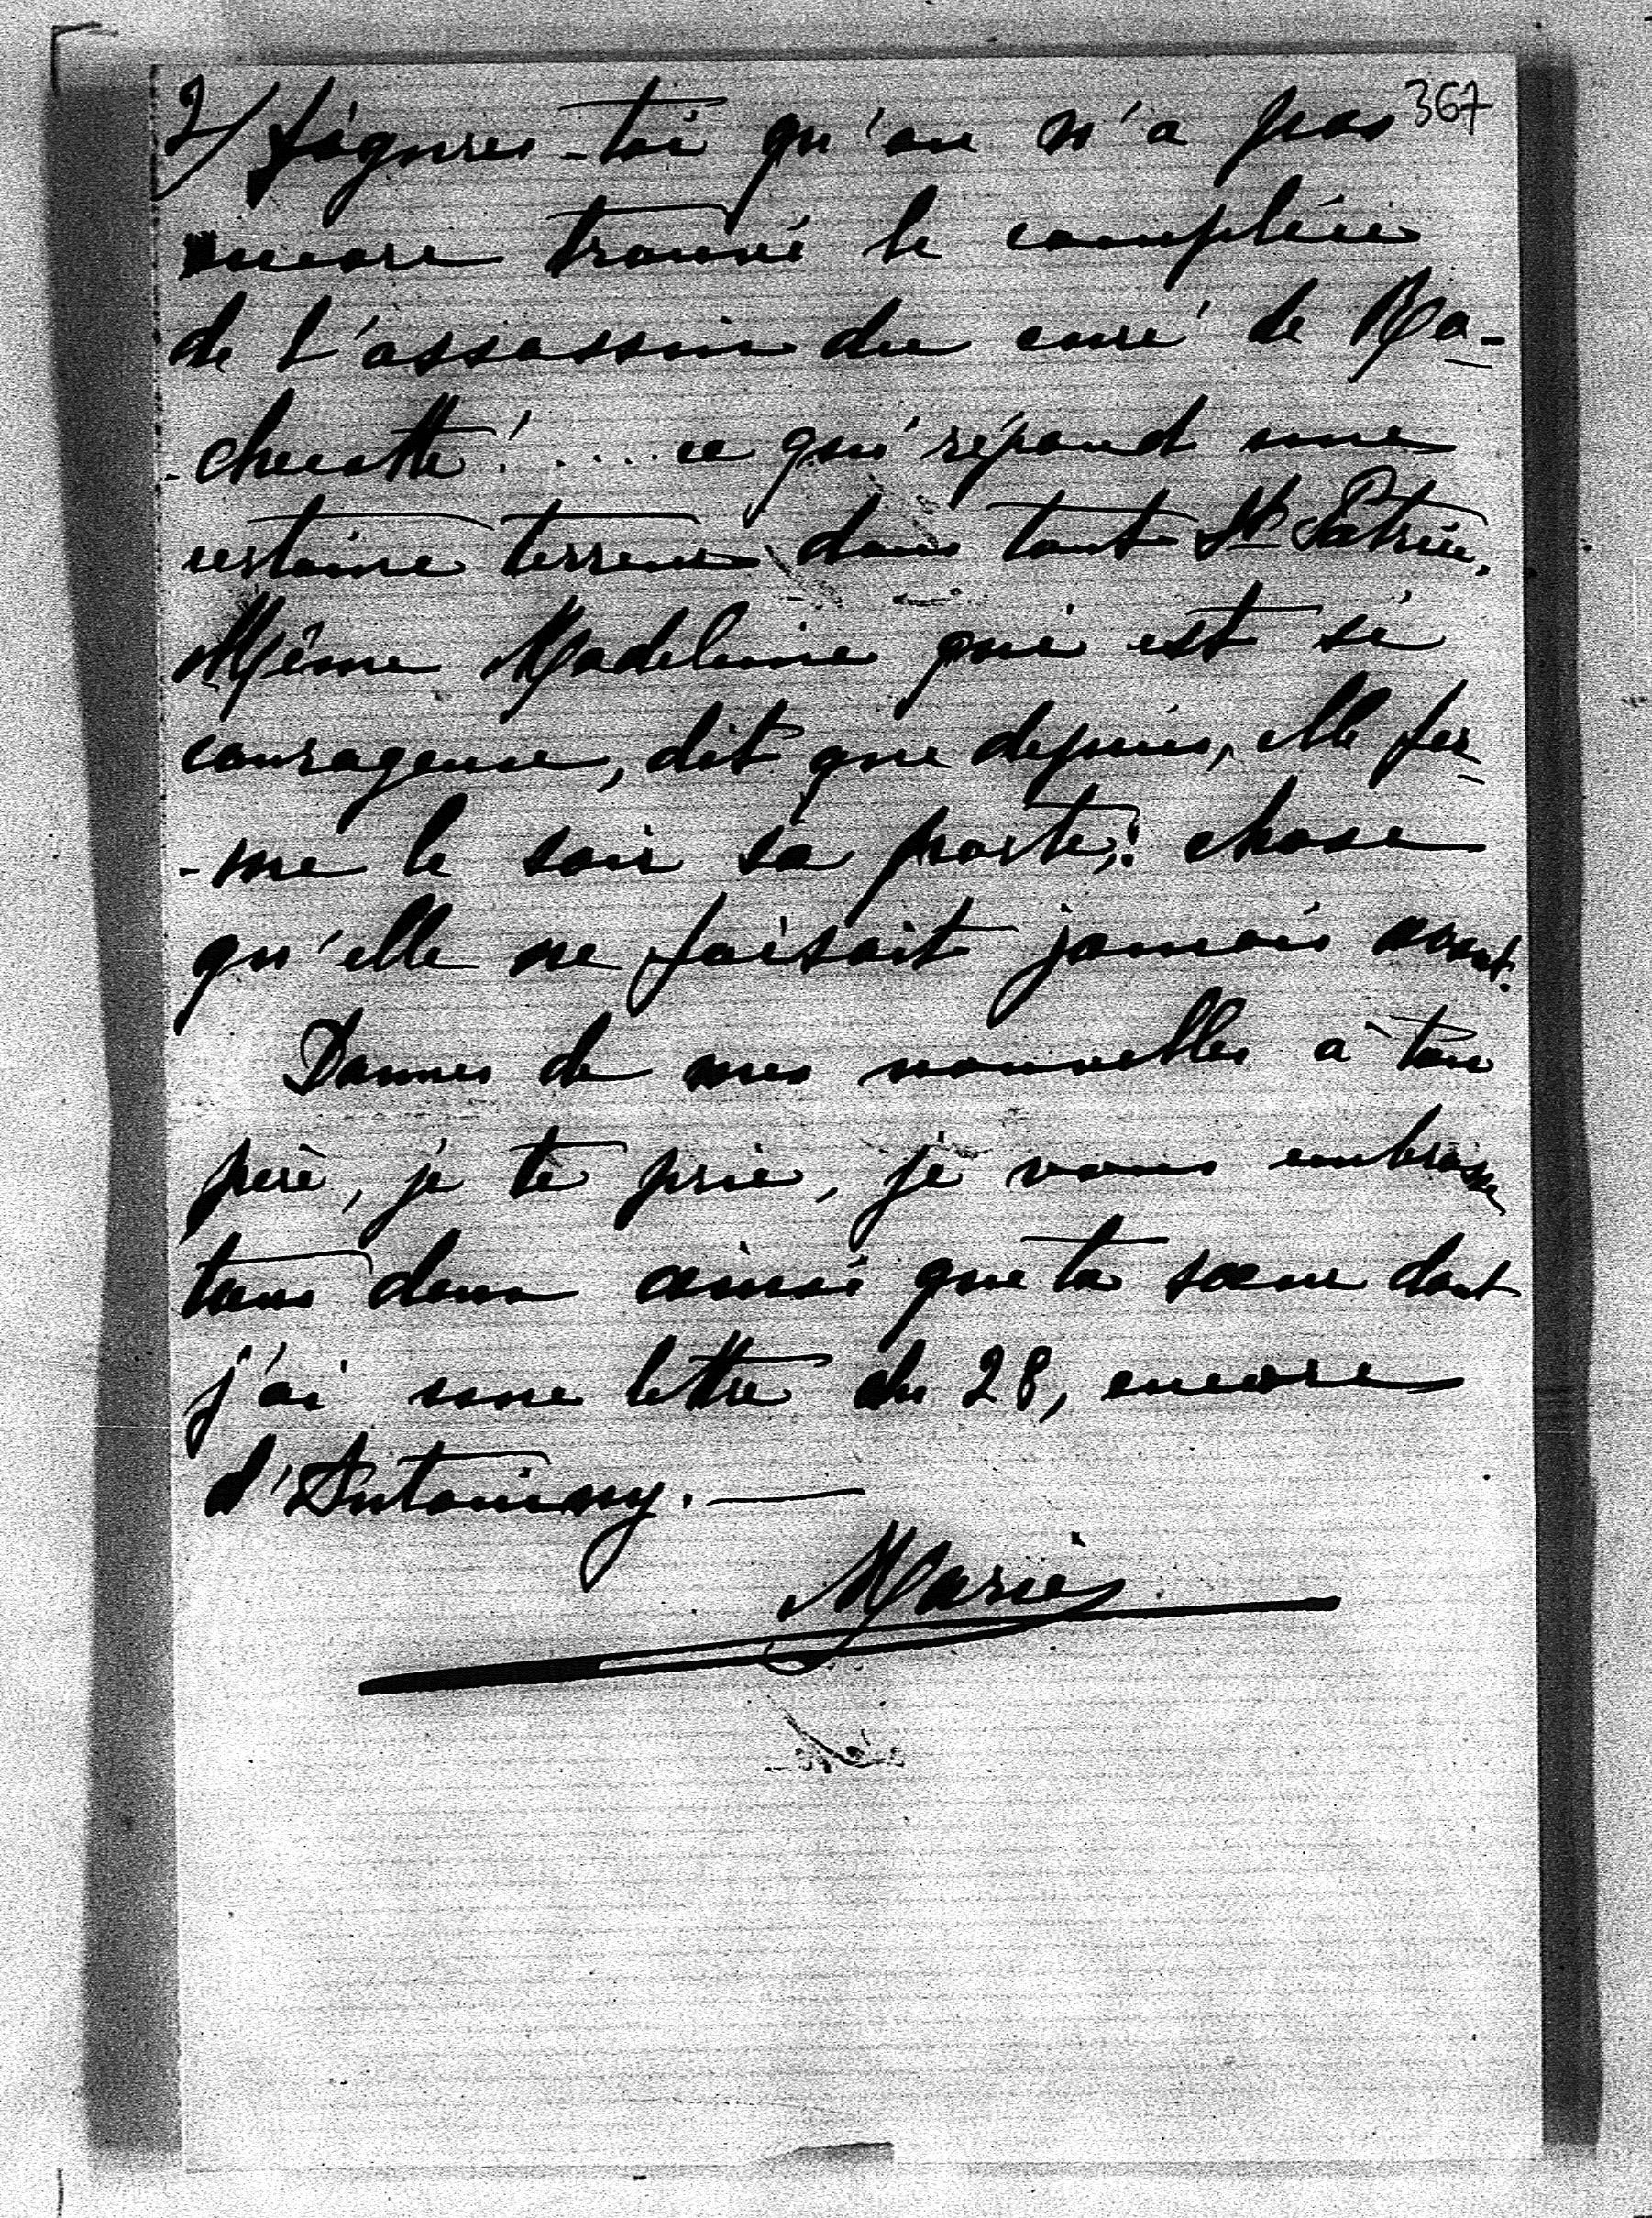 367
2/ figures-toi qu'on n'a pas
encore trouvé le complice
de l'assassin du curé de Ra-
-checotte! .... ce qui répand une
certaine terreur dans tout St Patrice.
Même Madeleine qui est si
courageuse, dit que depuis, elle fer-
-me le soir sa porte,! chose
qu'elle ne faisait jamais avant.
Donnes de mes nouvelles à ton
père, je te prie, je vous embrasse
tous deux ainsi que ta sœur dont
j'ai une lettre du 28, encore
d'Antoigny.
Marie